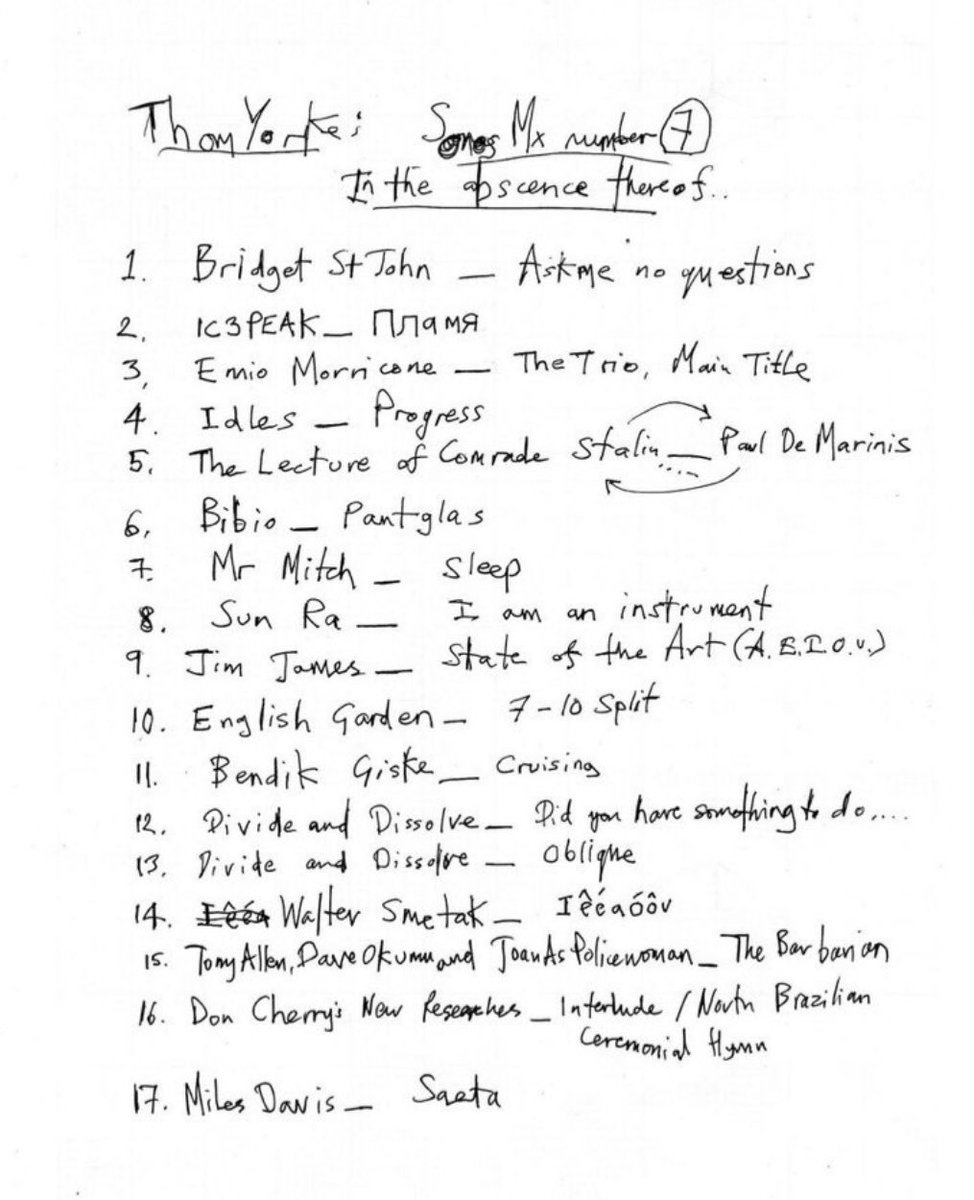 Thom Yorke: Songs Mx number 7
In the abscence thereof..
1. Bridget St John — Ask me no questions
2. IC3PEAK — Пламя
3, Emio Morricone — The Trio, Main Title
4. Idles — Progress
5. The Lecture of Comrade Stalin.... — Paul De Marinis
6, Bibio — Pantglas
7. Mr Mitch — Sleep
8. Sun Ra — I am an instrument
9. Jim James — State of the Art (A.E.I.O.U.)
10. English Garden — 7-10 Split
11. Bendik Giske — Cruising
12. Divide and Dissolve — Did you have something to do....
13. Divide and Dissolve — Oblique
14. Iêéa Walter Smetak — Iêéaóôv
15. Tony Allen, Dave Okumu and Joan As Policewoman — The Barbarian
16. Don Cherry's New Researches — Interlude / North Brazilian
Ceremonial Hymn
17. Miles Davis — Saeta